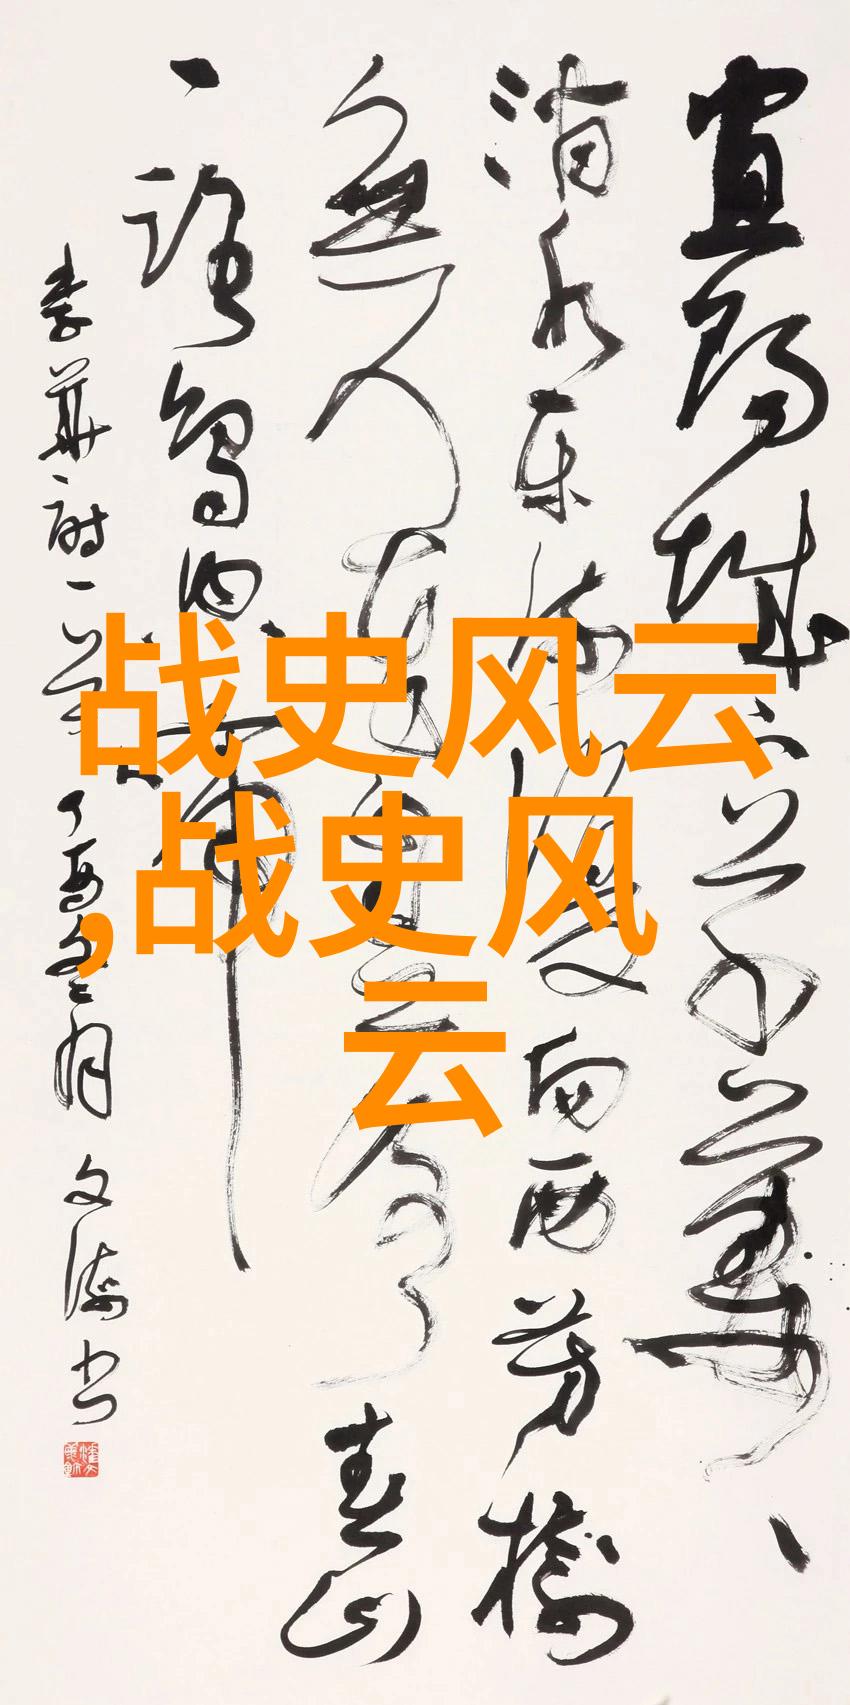 宜陽城下草萋萋
涧水东流復向西芳樹
無人花自落春山
一路鳥空啼
李華詩一首 丁亥冬月 文 书
战史风云
,战史风
云